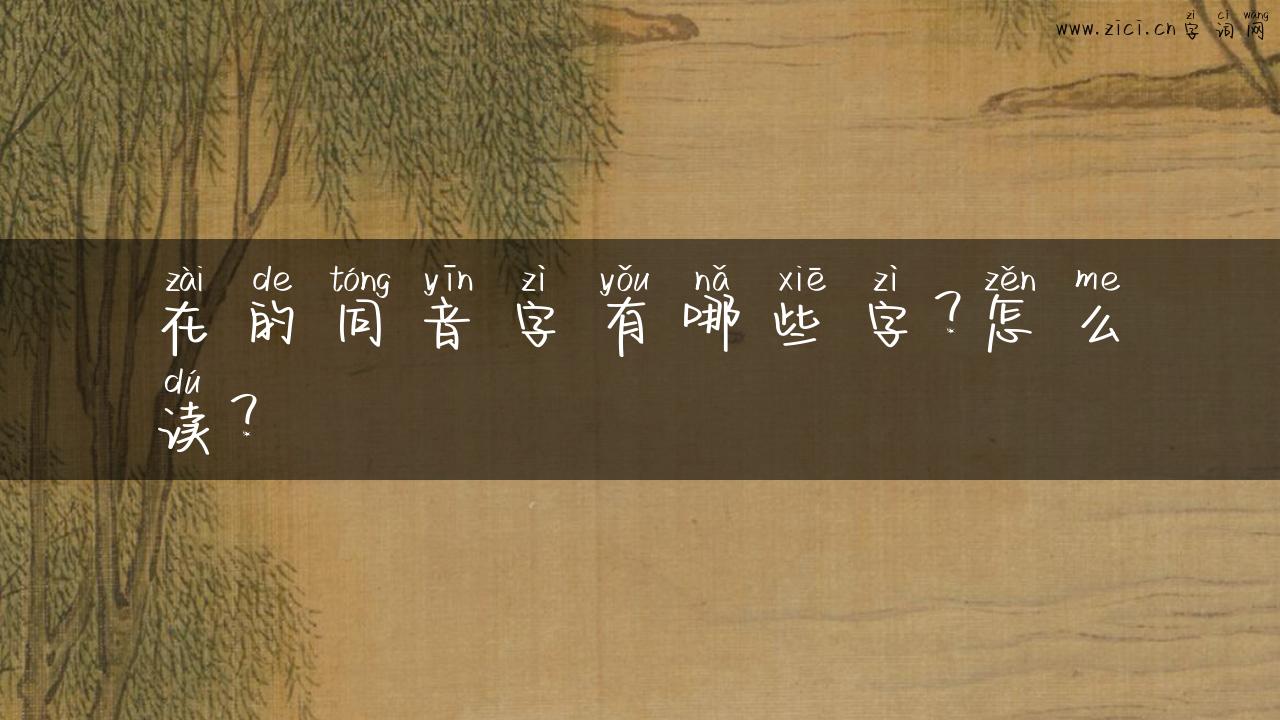 zì cí wǎng
www.zici.cn字词网
zài de tóng yīn zì yǒu nǎ xiē zì zěn me
在的同音字有哪些字？怎么
dú
读？